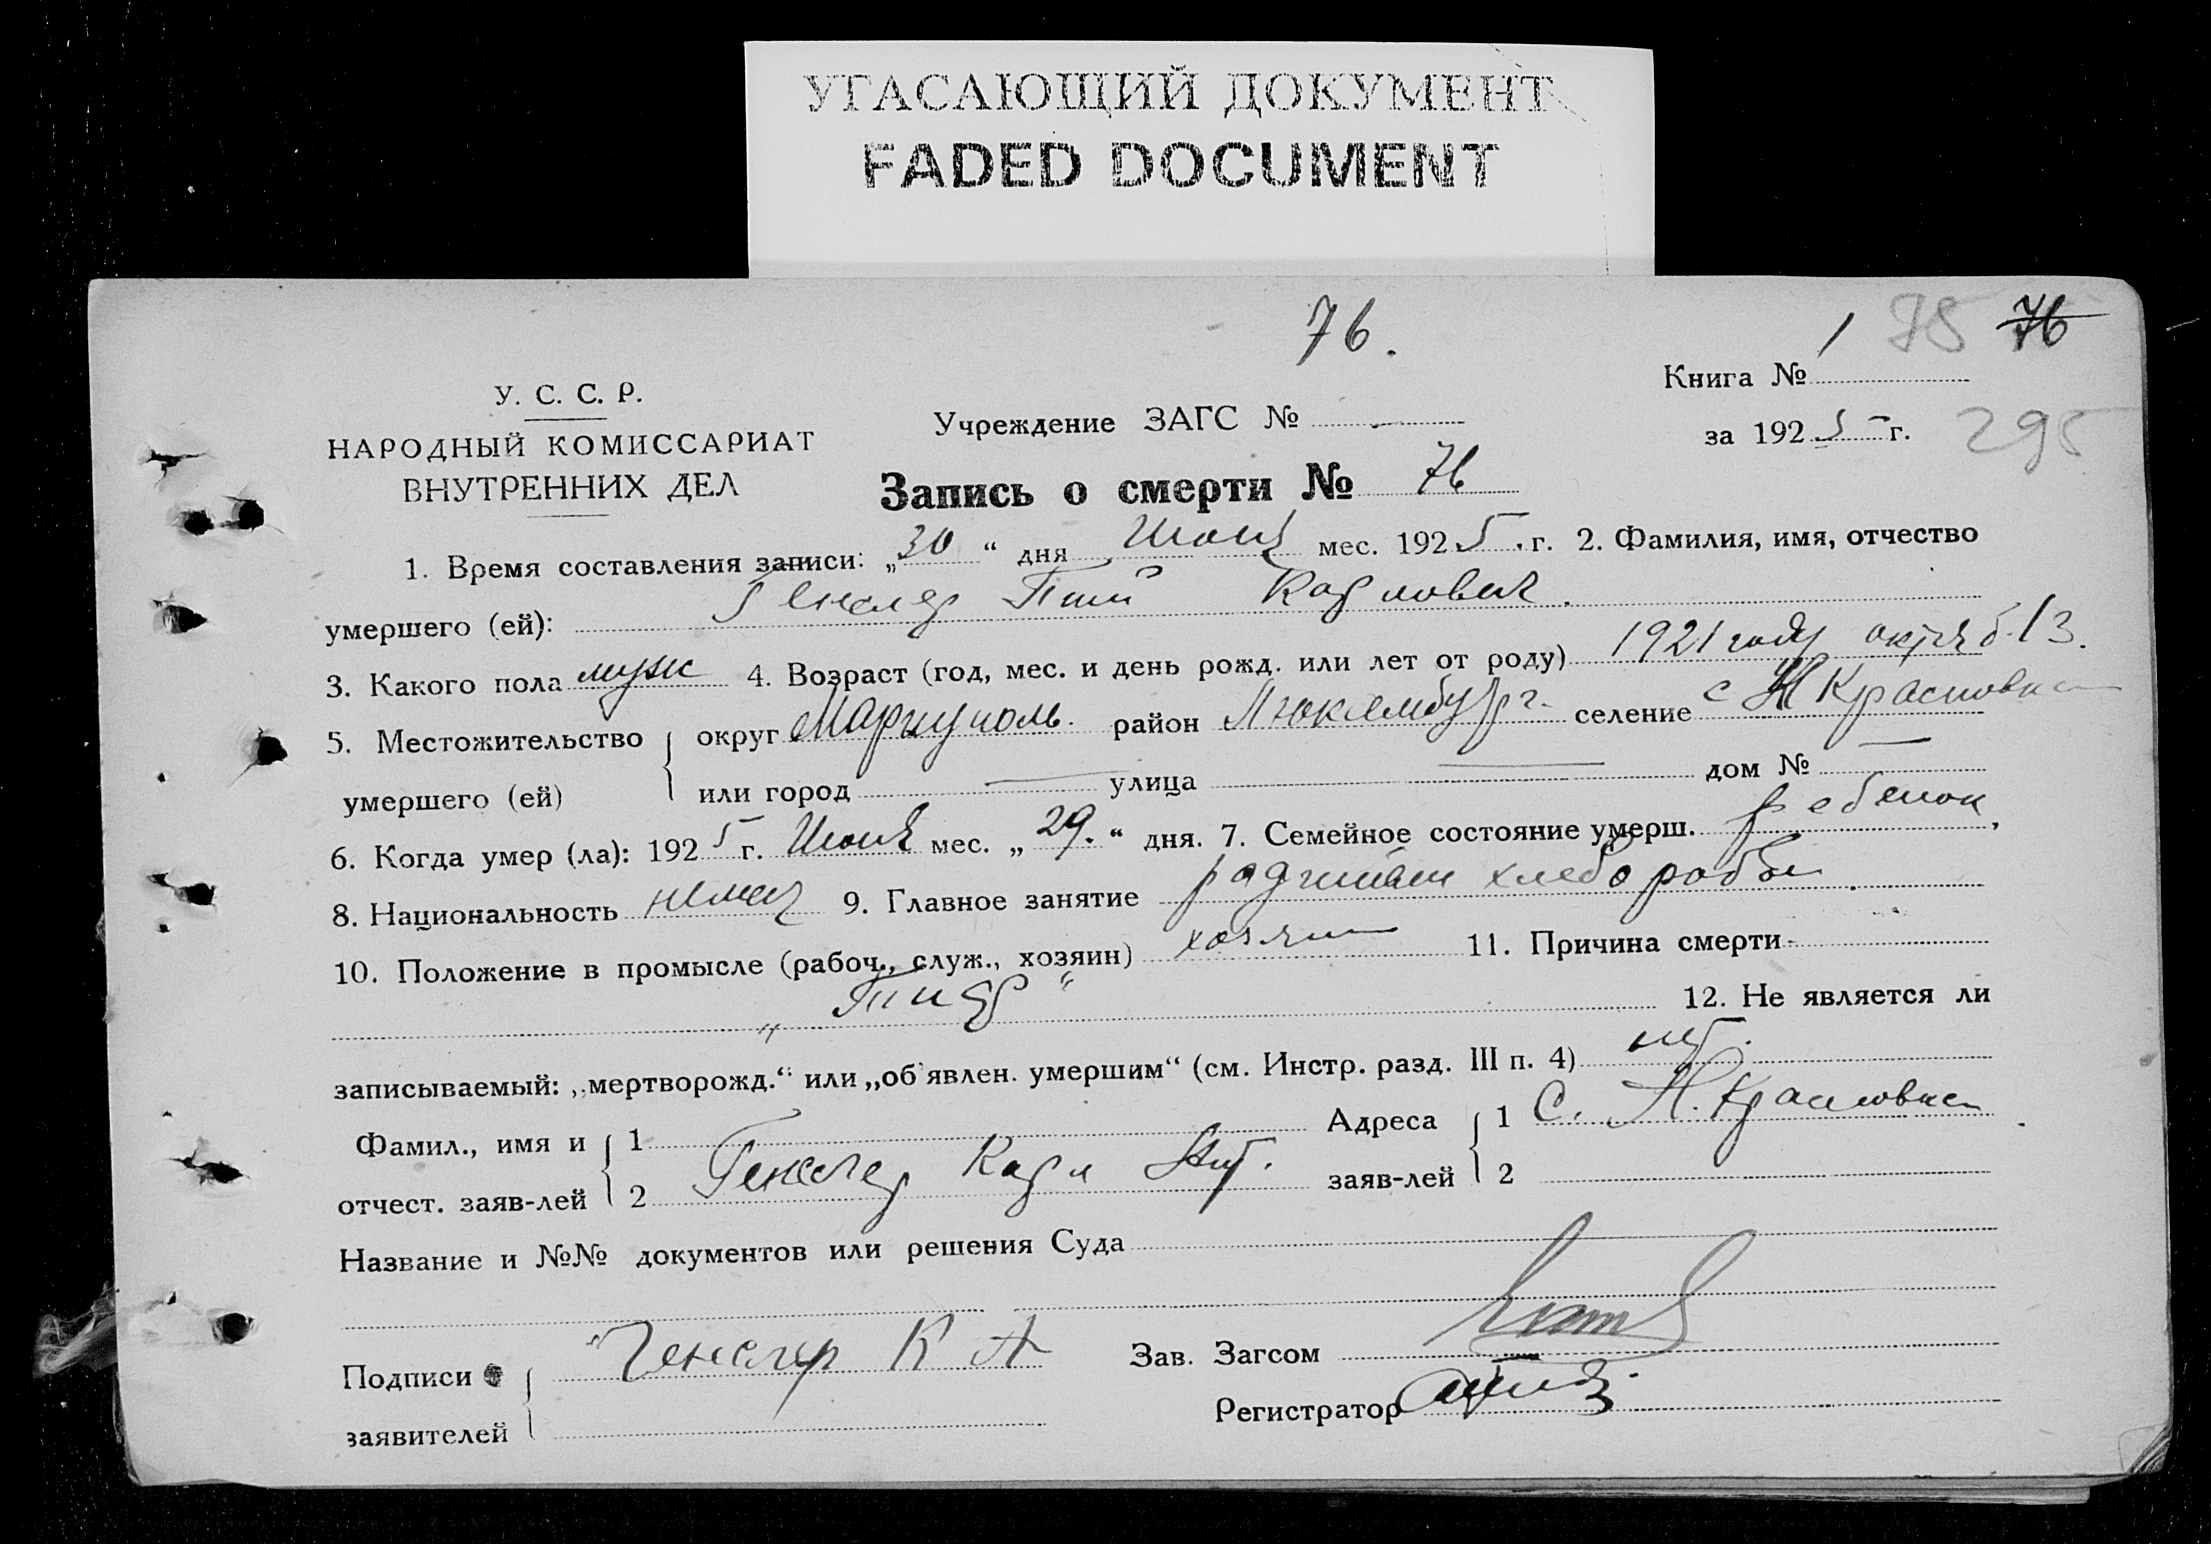 УГАСАЮЩИЙ ДОКУМЕНТ
FADED DOCUMENT
76.
1 75 76
Книга №
У. С. С. Р.
НАРОДНЫЙ КОМИССАРИАТ
ВНУТРЕННИХ ДЕЛ
Учреждение ЗАГС № —
за 1925 г. 295
Запись о смерти № 76
1. Время составления записи: „30“ дня Июня мес. 1925 г. 2. Фамилия, имя, отчество
умершего (ей): Генслер Карлович.
3. Какого пола муж 4. Возраст (год, мес. и день рожд. или лет от роду) 1921 году октяб. 13.
5. Местожительство умершего (ей) { округ Мариуполь. район Люксембург. селение с Н Красновка
или город — улица — дом № —
6. Когда умер (ла): 1925 г. Июня мес. „29.“ дня. 7. Семейное состояние умерш. ребенок,
8. Национальность немец 9. Главное занятие хлеборобы.
10. Положение в промысле (рабоч., служ., хозяин) хозяин 11. Причина смерти
12. Не является ли
записываемый: „мертворожд.“ или „об'явлен. умершим“ (см. Инстр. разд. III п. 4) нет.
Фамил., имя и отчест. заяв-лей { 1 Адреса заяв-лей { 1 С. Н. Красновка
2 Генслер Карл Ант. 2
Название и №№ документов или решения Суда
Подписи заявителей { Генслер К А Зав. Загсом
Регистратор